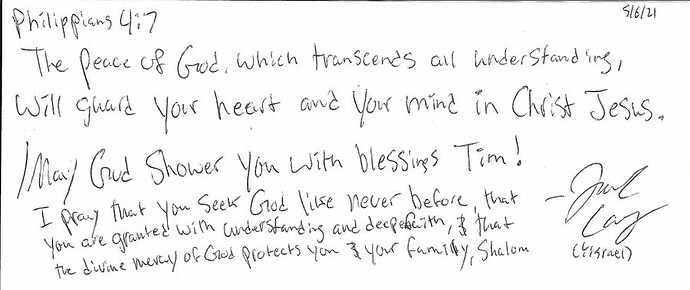 Philippians 4:7
5/6/21
The peace of God, which transcends all understanding,
will guard your heart and your mind in Christ Jesus.
May God Shower You with blessings Tim!
I pray that you seek God like never before, that
you are granted with understanding and deep faith, & that
the divine mercy of God protects you & your family, Shalom
(Yisrael)